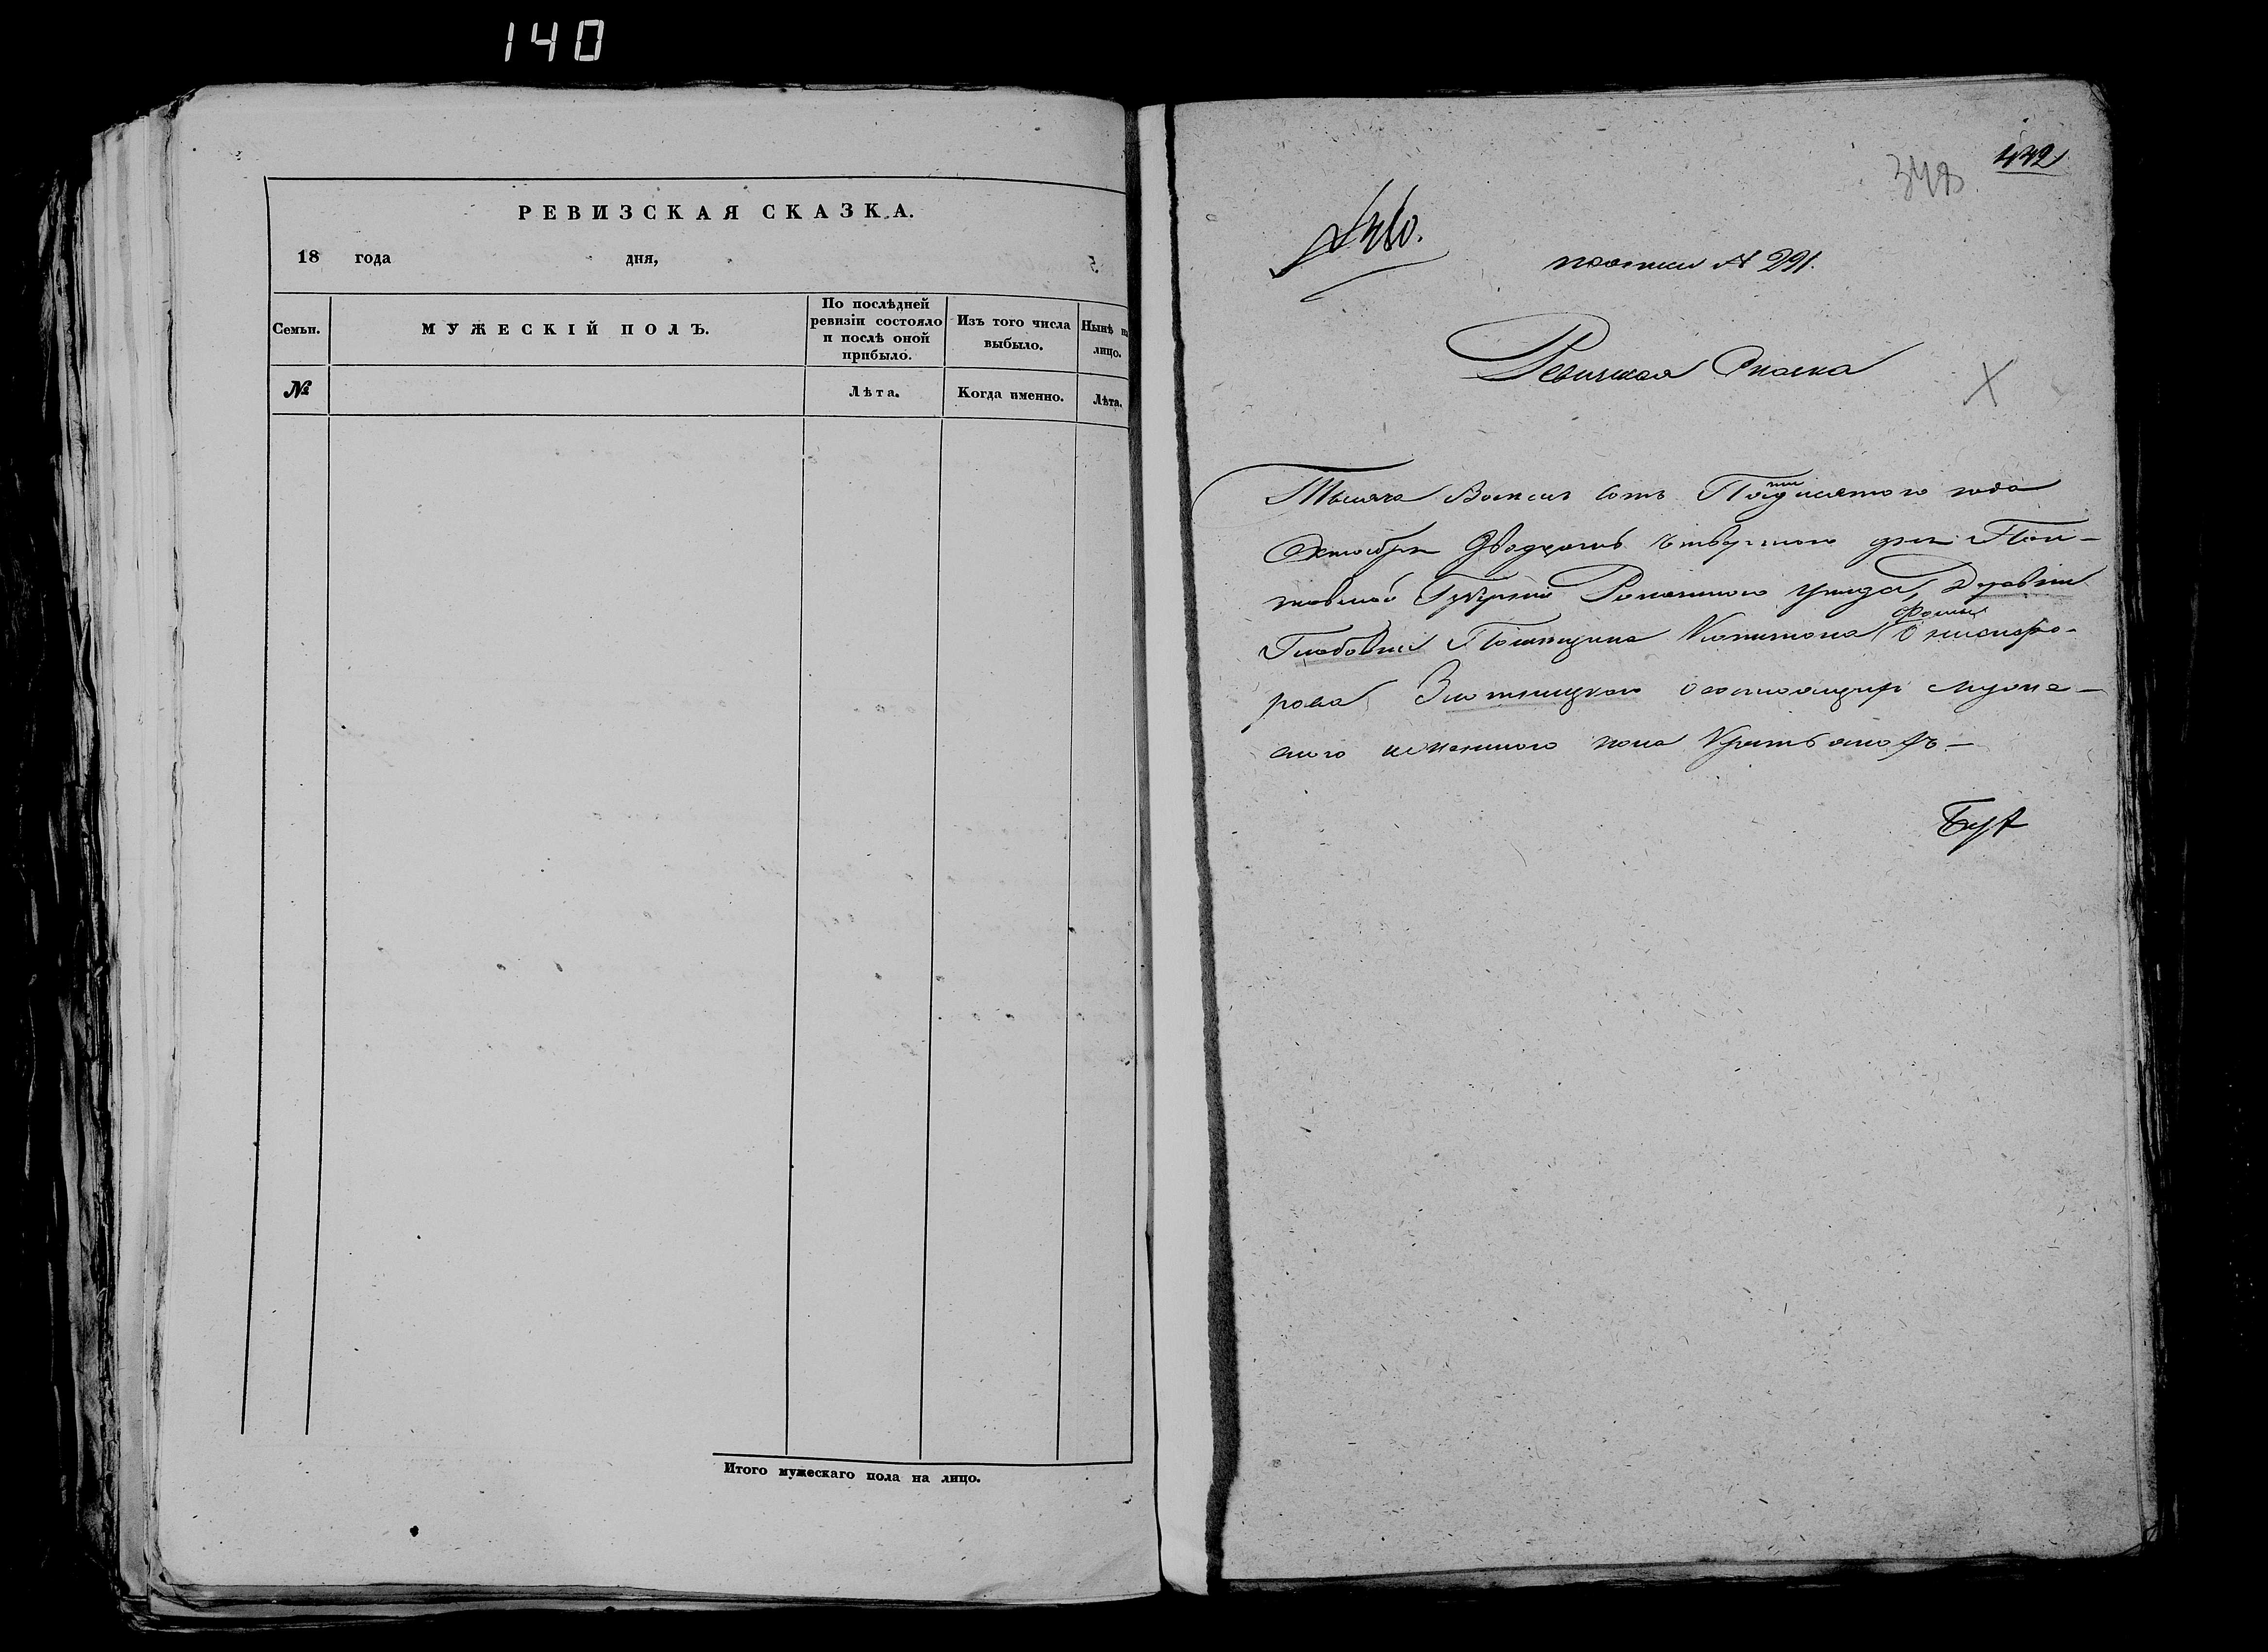 140
РЕВИЗСКАЯ СКАЗКА.
18 года дня,
Семьи.
МУЖЕСКІЙ ПОЛЪ.
По послѣдней
ревизіи состояло
и послѣ оной
прибыло.
Изъ того числа
выбыло.
Нынѣ на
лицо.
№
Лѣта.
Когда именно.
Лѣта.
Итого мужескаго пола на лицо.
442
348
№ 291.
Ревизская Сказка
Тысяча Восемь Сотъ Пятдесятого года
Октября Двадцать четвертого дня Пол-
тавской Губерніи Роменского уезда, Деревни
Помещика Капитона
рова осостоящихъ муже-
ского и женского пола Крестьянахъ —